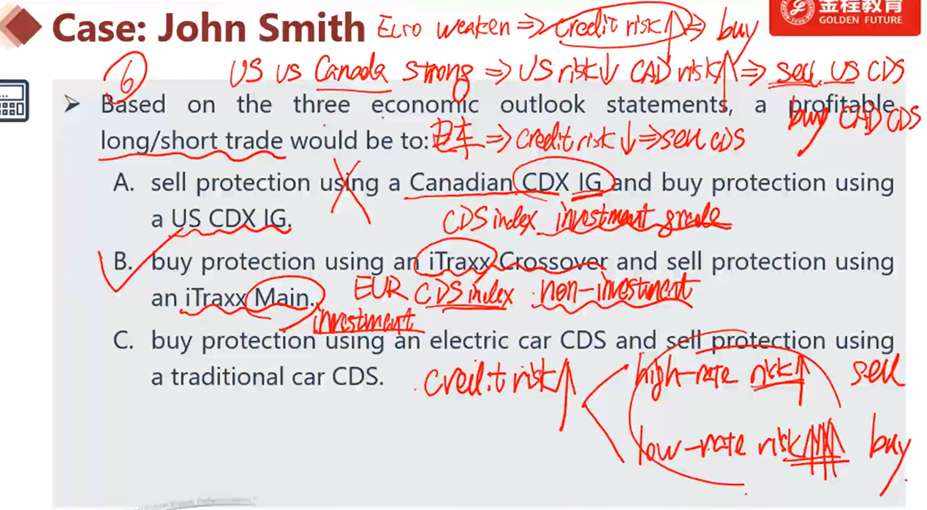 Case: John Smith Euro weaken ⇒ credit risk↑ ⇒ buy
金程教育
GOLDEN FUTURE
⑥ US vs Canada strong ⇒ US risk↓ CAD risk↑ ⇒ sell US CDS
buy CAD CDS
➤ Based on the three economic outlook statements, a profitable
long/short trade would be to: 电车 ⇒ credit risk↓ ⇒ sell CDS
A. sell protection using a Canadian CDX IG and buy protection using
a US CDX IG.
CDS index investment grade
B. buy protection using an iTraxx Crossover and sell protection using
an iTraxx Main.
EUR CDS index non-investment
investment
C. buy protection using an electric car CDS and sell protection using
a traditional car CDS.
credit risk↑
high-rate risk↑ sell
low-rate risk↑↑↑ buy